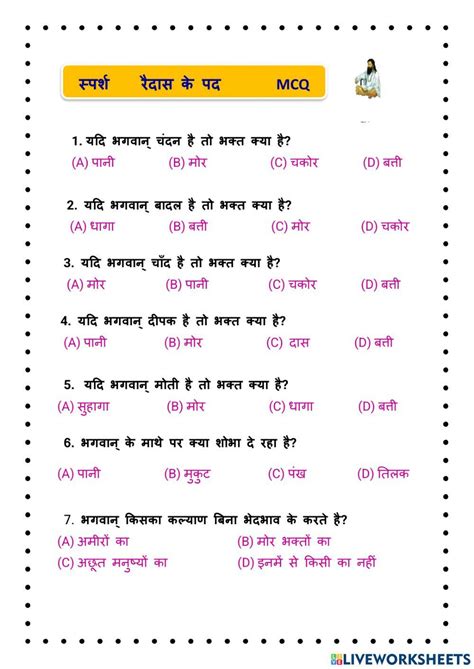 स्पर्श रैदास के पद MCQ
1. यदि भगवान् चंदन है तो भक्त क्या है?
(A) पानी (B) मोर (C) चकोर (D) बत्ती
2. यदि भगवान् बादल है तो भक्त क्या है?
(A) धागा (B) बत्ती (C) मोर (D) चकोर
3. यदि भगवान् चाँद है तो भक्त क्या है?
(A) मोर (B) पानी (C) चकोर (D) बत्ती
4. यदि भगवान् दीपक है तो भक्त क्या है?
(A) पानी (B) मोर (C) दास (D) बत्ती
5. यदि भगवान् मोती है तो भक्त क्या है?
(A) सुहागा (B) मोर (C) धागा (D) बत्ती
6. भगवान् के माथे पर क्या शोभा दे रहा है?
(A) पानी (B) मुकुट (C) पंख (D) तिलक
7. भगवान् किसका कल्याण बिना भेदभाव के करते है?
(A) अमीरों का (B) मोर भक्तों का
(C) अछूत मनुष्यों का (D) इनमें से किसी का नहीं
LIVEWORKSHEETS